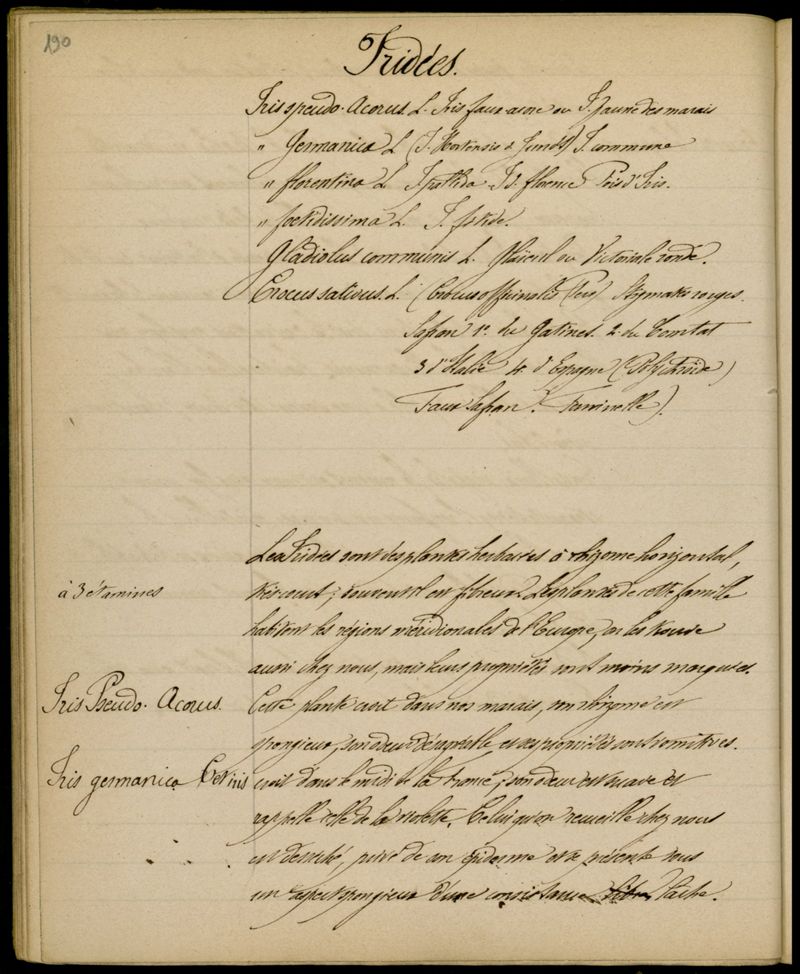 190
Iridées.
Iris pseudo-Acorus. L. Iris faux-acore ou I. jaune des marais
" Germanica L (I. Hortensis de) I. commune
" florentina L I. pallida I. d. florence Pois d'Iris.
" foetidissima L. I. fétide.
Gladiolus communis L. Glaïeul ou Victoriale ronde.
Crocus sativus. L. (Crocus officinalis Pers) Stygmates rouges.
Safran 1°. du Gatines. 2. du Comtat
3 d'Italie 4. d'Espagne (
Faux Safran. Faminelle).
Les Iridées sont des plantes herbacées à rhizome horizontal,
à 3 étamines
très court; souvent il est fibreux. Les plantes de cette famille
habitent les régions méridionales de l'Europe, on les trouve
aussi chez nous, mais leurs propriétés sont moins marquées.
Iris Pseudo-Acorus.
Cette plante croit dans nos marais, son rhizome est
spongieux, son odeur désagréable et ses propriétés sont vomitives.
Iris germanica
croit dans le midi de la France; son odeur est suave et
rappelle celle de la violette. Celui qu'on recueille chez nous
est desséché, privé de son épiderme et se présente sous
un aspect spongieux d'une consistance lâche.